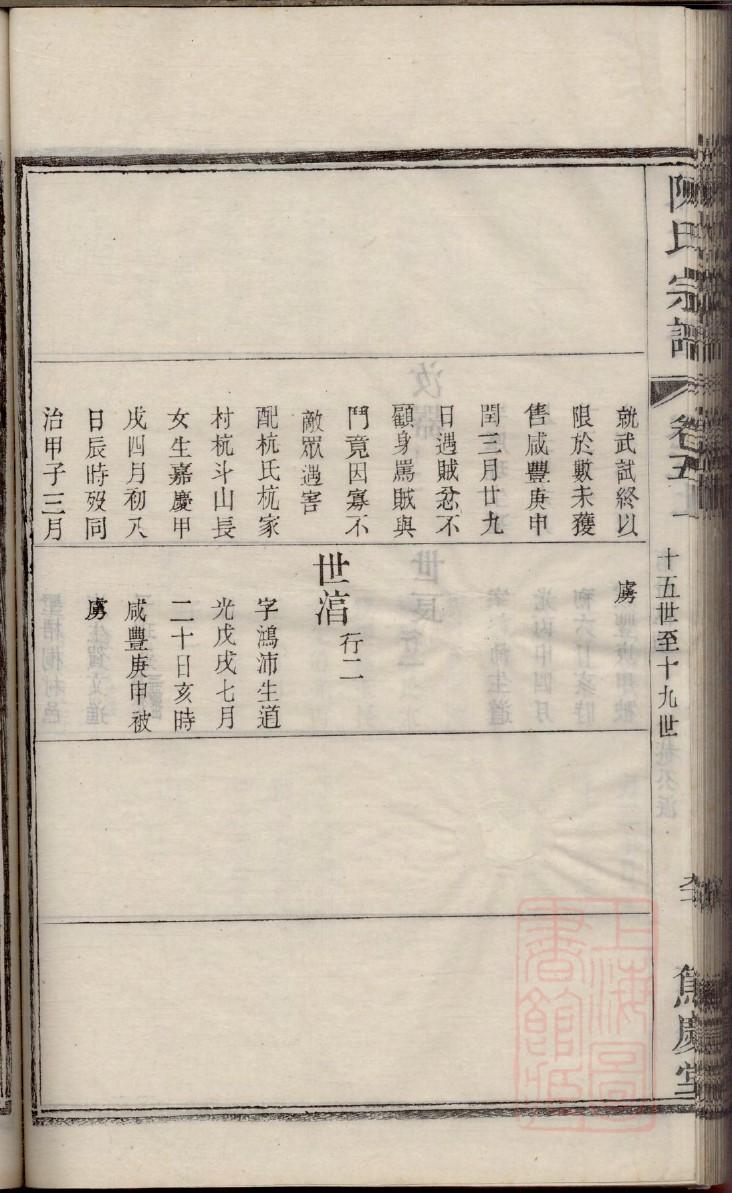 陳氏宗譜
卷五
十五世至十九世
焦慶堂
就武試終以
限於數未獲
售咸豐庚申
閏三月廿九
日遇賊忿不
顧身罵賊與
鬥竟因寡不
敵眾遇害
配杭氏杭家
村杭斗山長
女生嘉慶甲
戌四月初八
日辰時歿同
治甲子三月
虜
世湆
行二
字鴻沛生道
光戊戌七月
二十日亥時
咸豐庚申被
虜
上海圖
書館藏